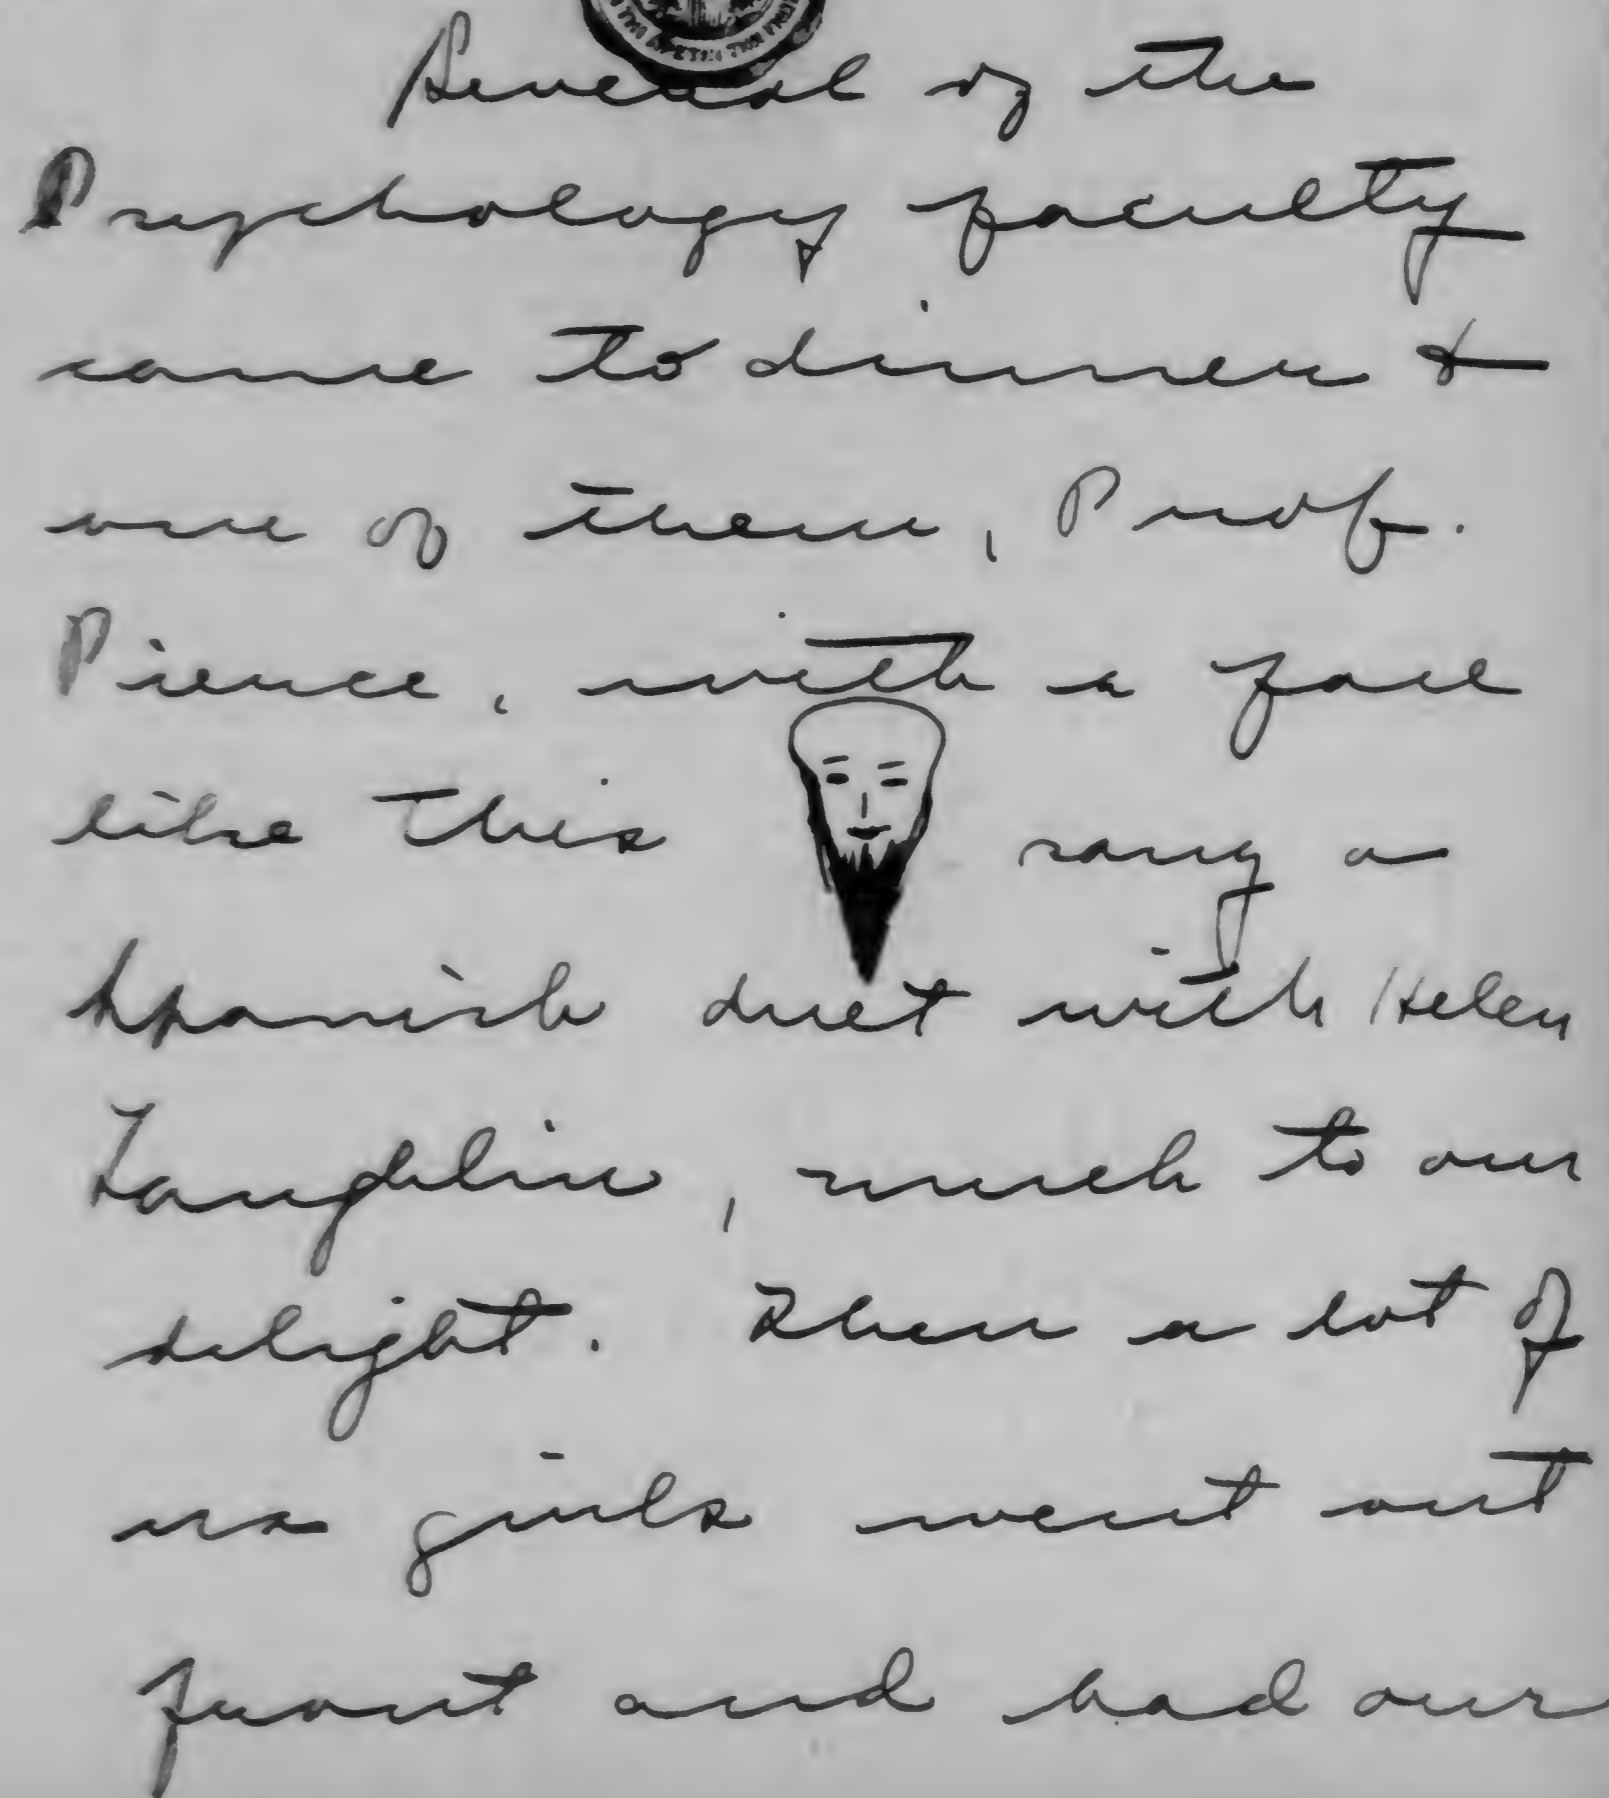 Several of the
Psychology faculty
came to dinner &
one of them, Prof.
Pierce, with a face
like this sang a
Spanish duet with Helen
Laughlin, much to our
delight. Then a lot of
us girls went out
front and had our